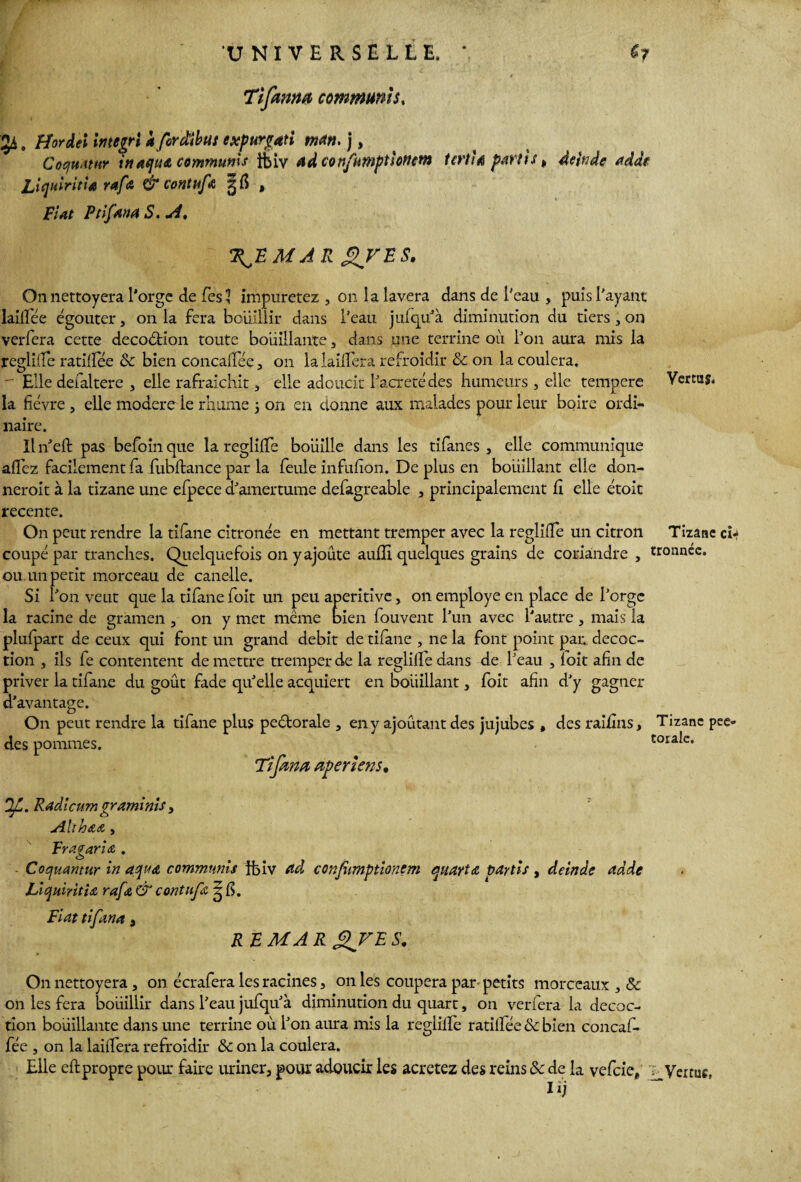 UNIVERSELLE. 67
Tiſanna communis.
℞. Hordei integri à ſordibus expurgati man. j,
Coquatur in aqua communis ℔iv ad conſumptionem tertiæ partis, deinde adde
Liquiritiæ raſæ & contuſæ ℥ß,
Fiat Ptiſana S. A.
REMARQVES.
On nettoyera l'orge de ſes impuretez, on la lavera dans de l'eau, puis l'ayant
laiſſée égouter, on la fera boüillir dans l'eau juſqu'à diminution du tiers, on
verſera cette decoction toute boüillante, dans une terrine où l'on aura mis la
regliſſe ratiſſée & bien concaſſée, on la laiſſera refroidir & on la coulera.
Elle deſaltere, elle rafraichit, elle adoucit l'acreté des humeurs, elle tempere
Vertus.
la fiévre, elle modere le rhume; on en donne aux malades pour leur boire ordi-
naire.
Il n'eſt pas beſoin que la regliſſe boüille dans les tiſanes, elle communique
aſſez facilement ſa ſubſtance par la ſeule infuſion. De plus en boüillant elle don-
neroit à la tizane une eſpece d'amertume deſagreable, principalement ſi elle étoit
recente.
On peut rendre la tiſane citronée en mettant tremper avec la regliſſe un citron
Tizane ci-
coupé par tranches. Quelquefois on y ajoûte auſſi quelques grains de coriandre,
tronnée.
ou un petit morceau de canelle.
Si l'on veut que la tiſane ſoit un peu aperitive, on employe en place de l'orge
la racine de gramen, on y met même bien ſouvent l'un avec l'autre, mais la
pluſpart de ceux qui font un grand debit de tiſane, ne la font point par decoc-
tion, ils ſe contentent de mettre tremper de la regliſſe dans de l'eau, ſoit afin de
priver la tiſane du goût fade qu'elle acquiert en boüillant, ſoit afin d'y gagner
d'avantage.
On peut rendre la tiſane plus pectorale, en y ajoûtant des jujubes, des raiſins,
Tizane pec-
des pommes.
torale.
Tiſana aperiens.
℞. Radicum graminis,
Althææ,
Fragariæ.
Coquantur in aqua communis ℔iv ad conſumptionem quartæ partis, deinde adde
Liquiritiæ raſæ & contuſæ ℥ß.
Fiat tiſana,
REMARQVES.
On nettoyera, on écraſera les racines, on les coupera par petits morceaux, &
on les fera boüillir dans l'eau juſqu'à diminution du quart, on verſera la decoc-
tion boüillante dans une terrine où l'on aura mis la regliſſe ratiſſée & bien concaſ-
ſée, on la laiſſera refroidir & on la coulera.
Elle eſt propre pour faire uriner, pour adoucir les acretez des reins & de la veſcie,
Vertus.
I ij